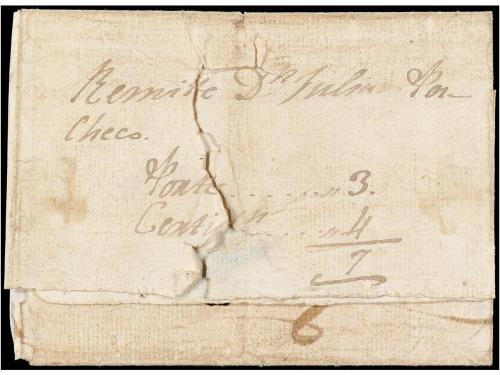 Remite Dn Julian Pa-
checo.
Porte........,,3.
Certif.......,,4
7
6